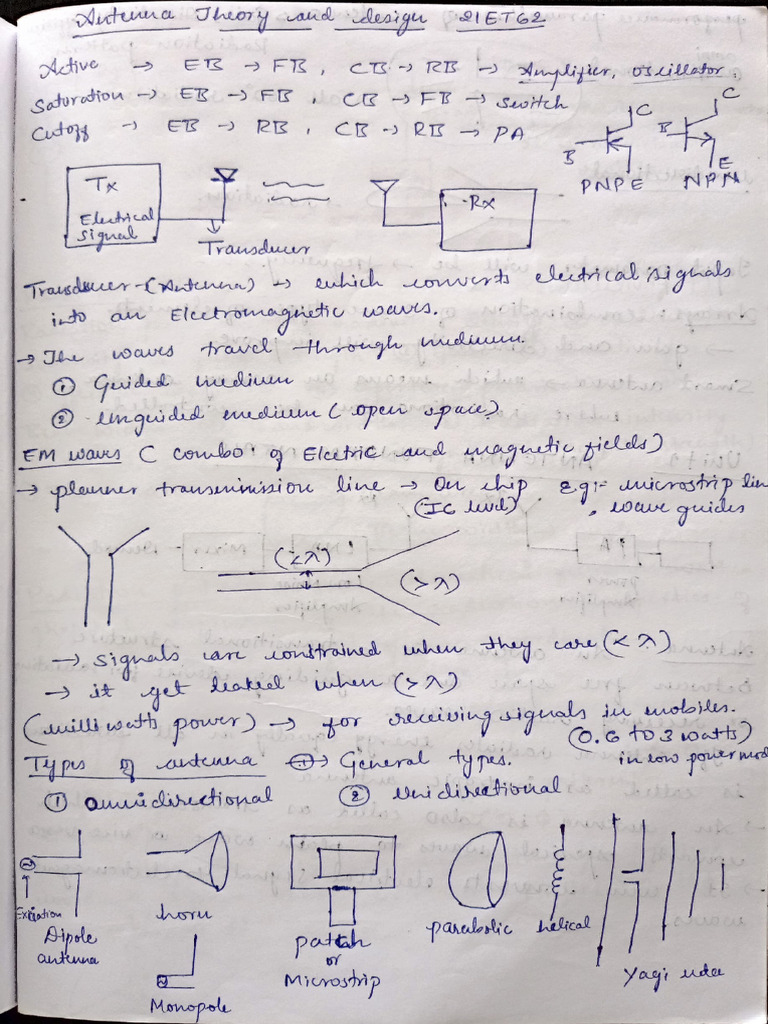 Antenna Theory and design 21ET62
Active → EB → FB, CB → RB → Amplifier, oscillator,
Saturation → EB → FB, CB → FB → switch
Cutoff → EB → RB, CB → RB → PA
C
C
B
B
E
PNPE
NPN
Tx
Electrical
signal
Rx
Transducer
Transducer - (Antenna) → which converts electrical signals
into an Electromagnetic waves.
→ The waves travel through medium.
① Guided medium
② unguided medium (open space)
EM waves (combo of Elcetric and magnetic fields)
→ planner transmission line → On chip Eg:- microstrip lin
(IC level) , wave guides
(<λ)
(>λ)
→ signals are constrained when they care (<λ)
→ it get leaked when (>λ)
(milliwatts power) → for receiving signals in mobiles.
(0.6 to 3 watts)
Types of antenna → General types.
in low power mod
① omnidirectional ② Unidirectional
Excitation
Dipole
antenna
horn
Monopole
patch
or
Microstrip
parabolic
helical
Yagi uda